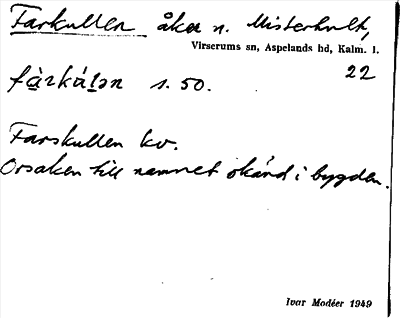 Farkullen åker n. Misterhult,
Virserums sn, Aspelands hd, Kalm. l.
22
fàrkálən s. 50.
Farskullen kv.
Orsaken till namnet okänd i bygden.
Ivar Modéer 1949